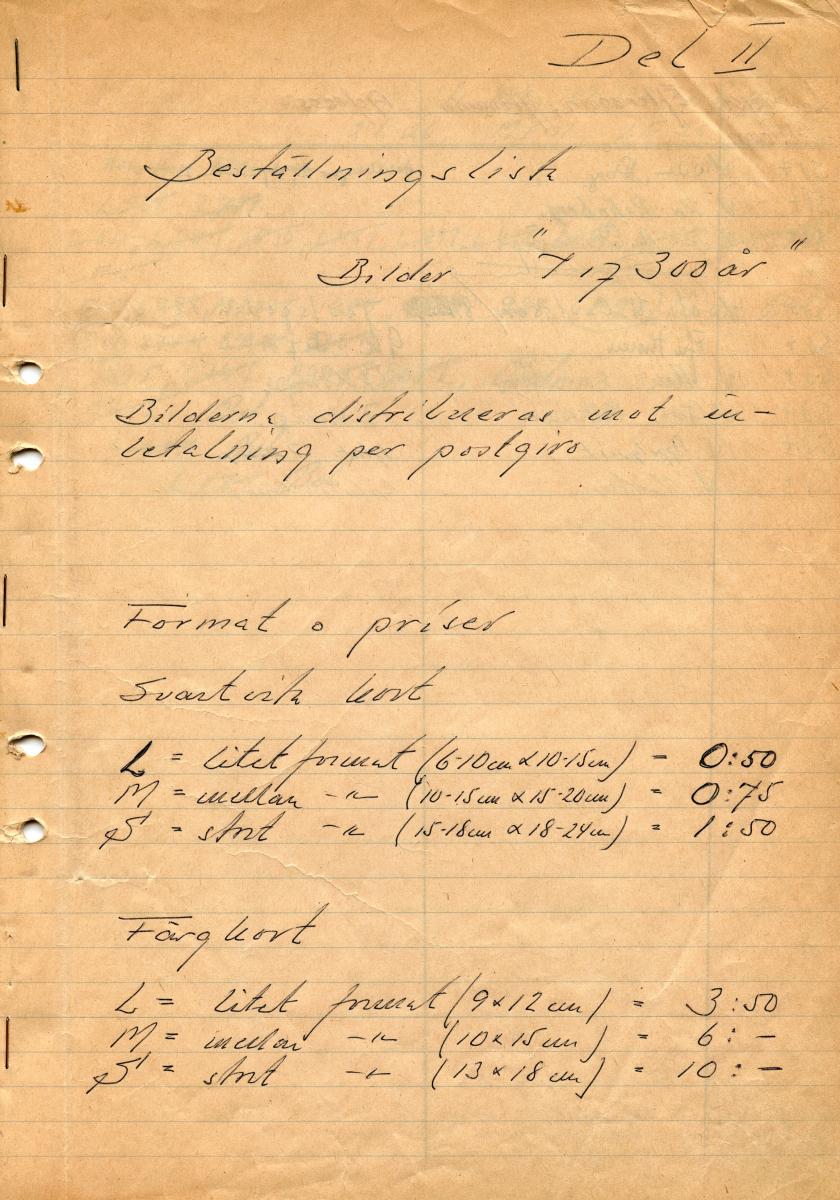 Del II
Beställningslista
Bilder "I 17 300 år"
Bilderna distribueras mot in-
betalning per postgiro
Format o priser
Svartvita kort
L = litet format (6-10cm x 10-15cm) = 0:50
M = mellan -"- (10-15cm x 15-20cm) = 0:75
S = stort -"- (15-18cm x 18-24cm) = 1:50
Färgkort
L = litet format (9x12cm) = 3:50
M = mellan -"- (10x15cm) = 6:-
S = stort -"- (13x18cm) = 10:-